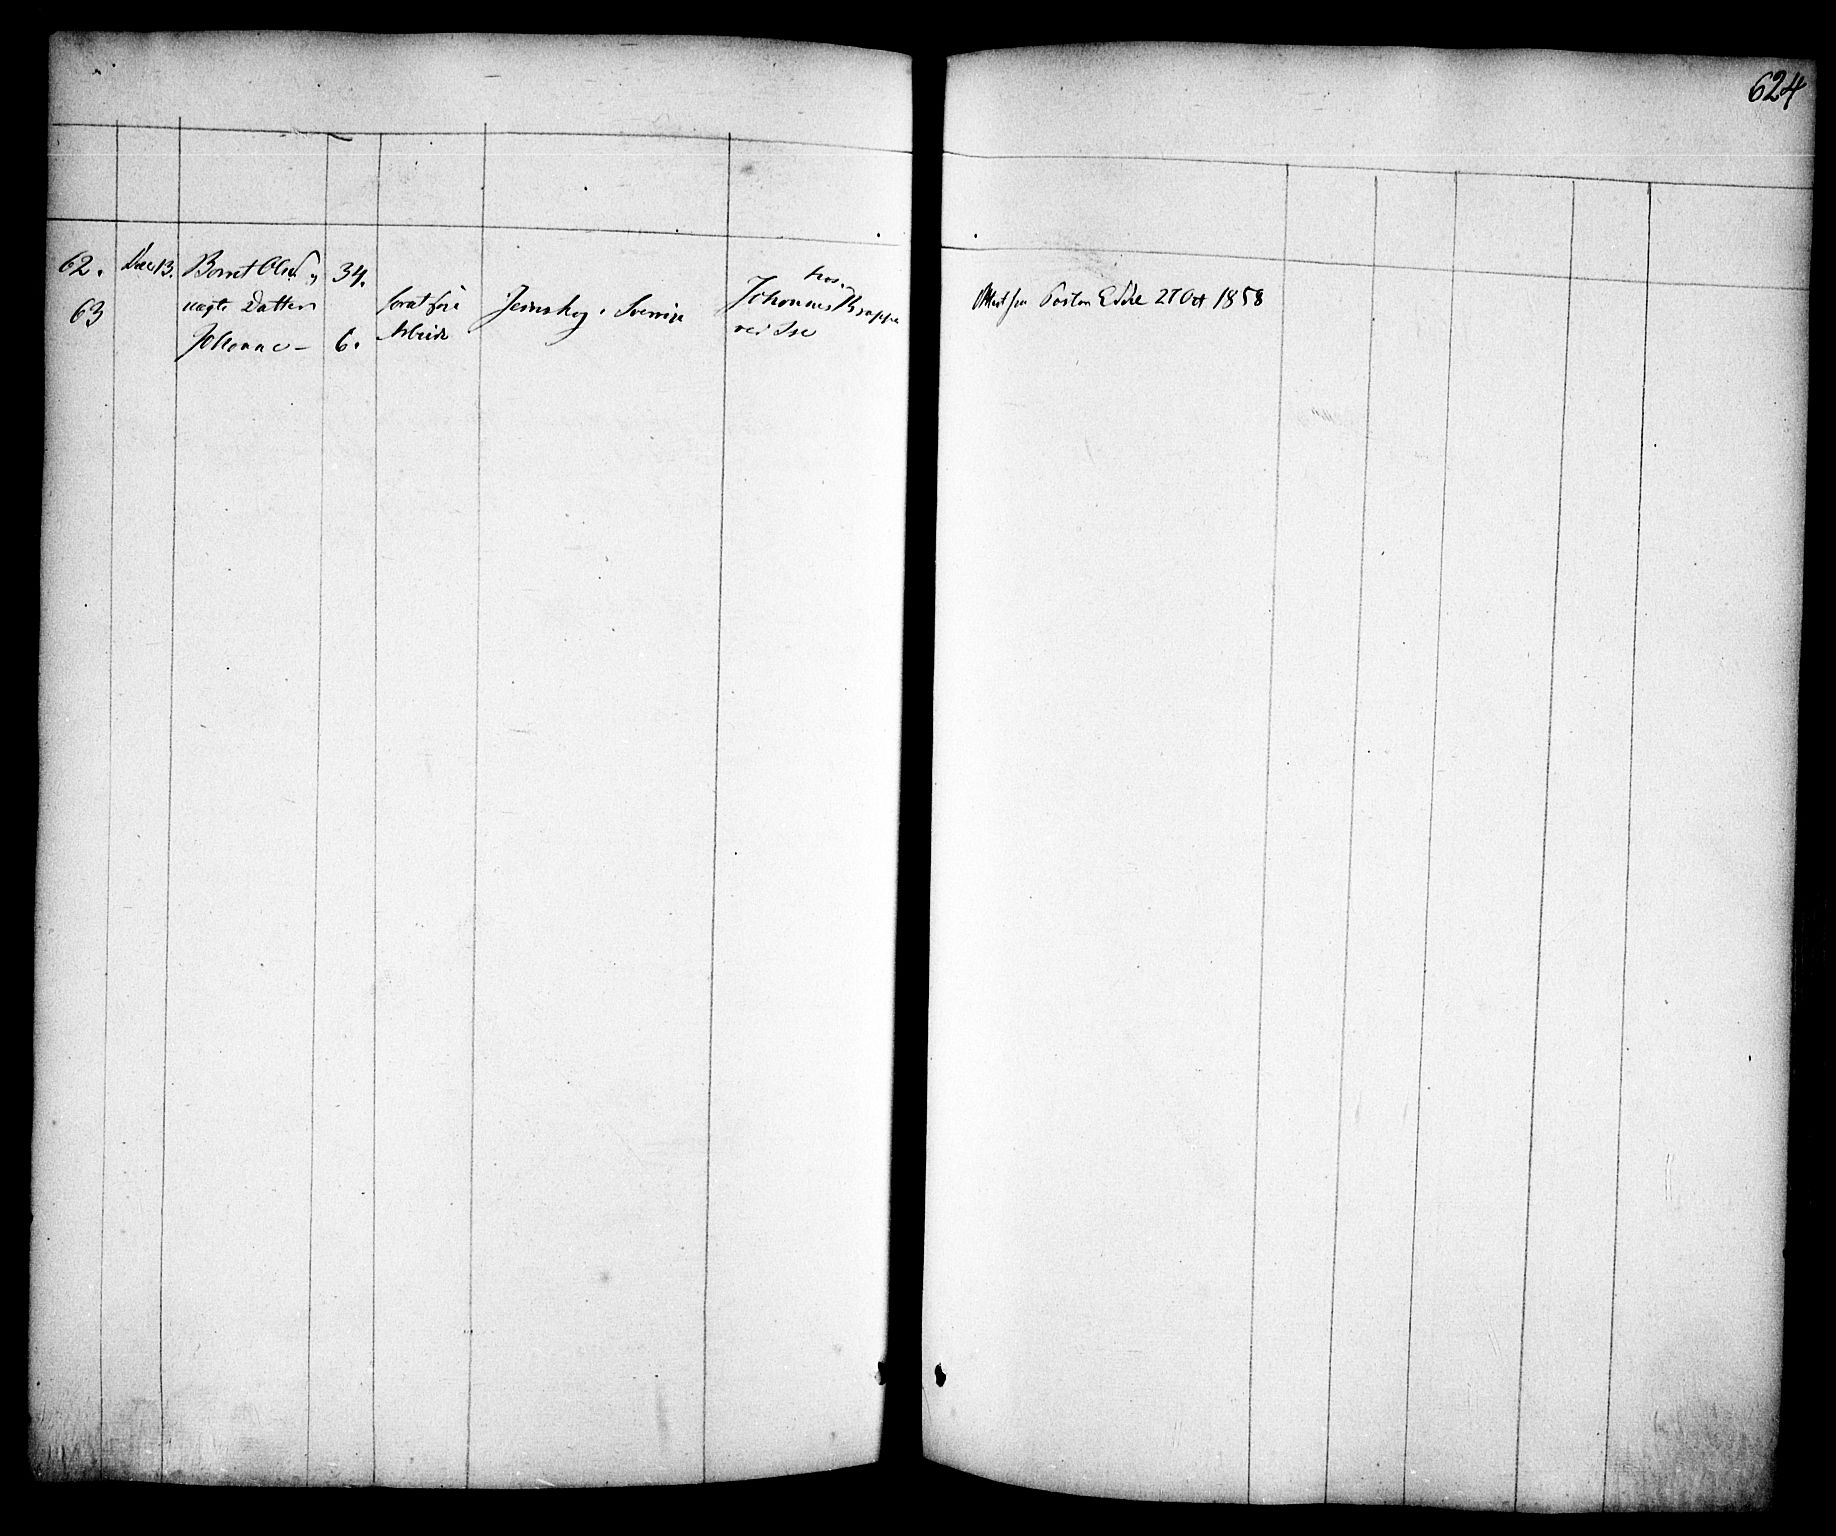 624
62. Dec 13. Bernt Olsd 34.
63 uægte Datter
Johanne – 6.
Arbeide
Jernskog i Sverrige
hos
Johannes Brappe
ved Ise
Attest fra Pastor Edee 27 Oct 1858